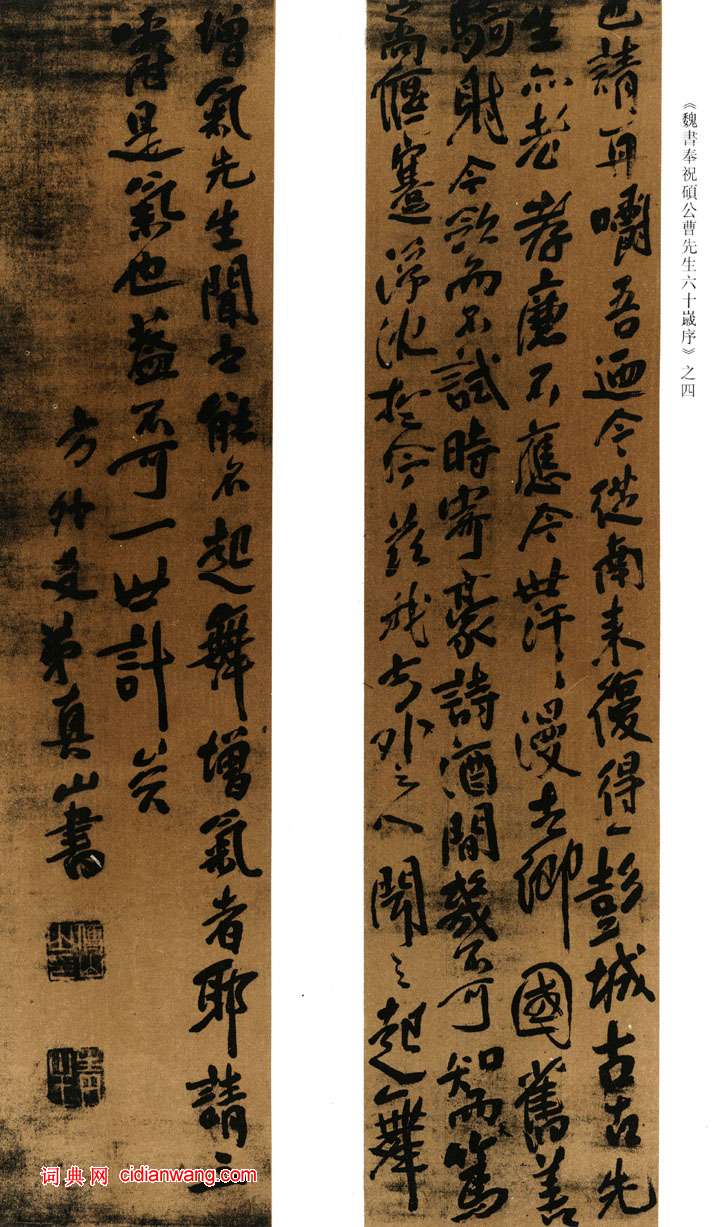 《魏書奉祝碩公曹先生六十歲序》之四
也請再嚼吾迺今從南来復得一彭城古古先
生亦老孝廉不應今世汗、漫去鄉國舊善
騎射今欲而不試時寄豪詩酒間幾不可知而篤
耑偃蹇浮沈於今兹我方外之人聞之起舞
增氣先生聞之能不起舞增氣者耶請三
嚼是氣也蓋不可一世計矣
方外友弟真山書
傅山
词典网 cidianwang.com